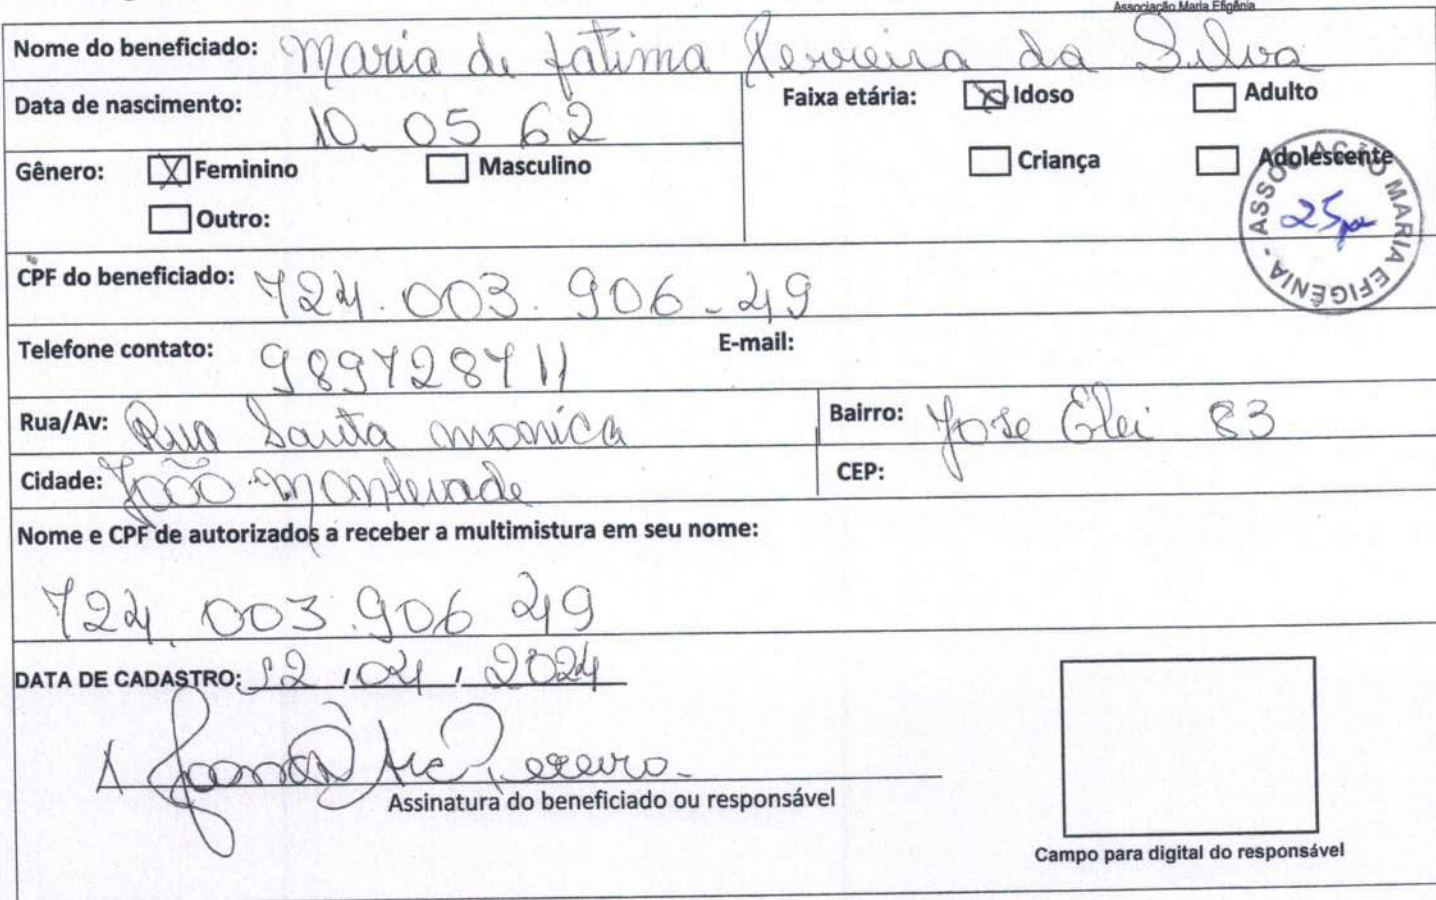 Associação Maria Efigênia
Nome do beneficiado: Maria de fatima Ferreira da Silva
Data de nascimento: 10 05 62
Faixa etária: Idoso Adulto
Criança Adolescente
Gênero: Feminino Masculino
Outro:
ASSOCIAÇÃO MARIA EFIGÊNIA -
25
CPF do beneficiado: 724.003.906-49
Telefone contato: 989728711 E-mail:
Rua/Av: Rua Santa monica Bairro: Jose Elei 83
Cidade: João Monlevade CEP:
Nome e CPF de autorizados a receber a multimistura em seu nome:
724.003.906 49
DATA DE CADASTRO: 12 / 04 / 2024
Assinatura do beneficiado ou responsável
Campo para digital do responsável